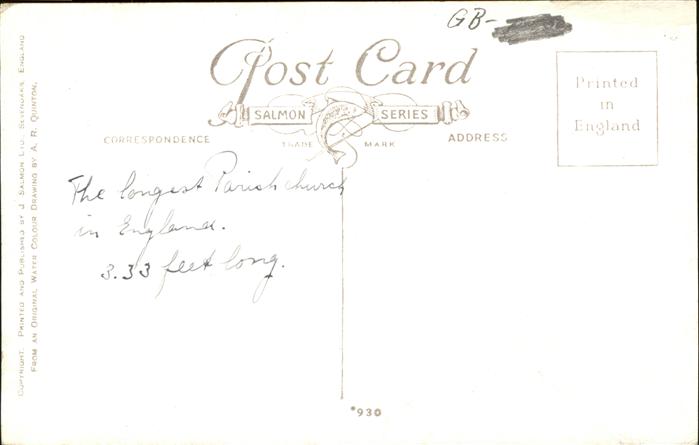 GB-
Post Card
SALMON SERIES
TRADE MARK
CORRESPONDENCE
ADDRESS
Printed
in
England
The longest Parish church
in England.
3.33 feet long.
*930
COPYRIGHT. PRINTED AND PUBLISHED BY J. SALMON LTD., SEVENOAKS, ENGLAND
FROM AN ORIGINAL WATER COLOUR DRAWING BY A. R. QUINTON.